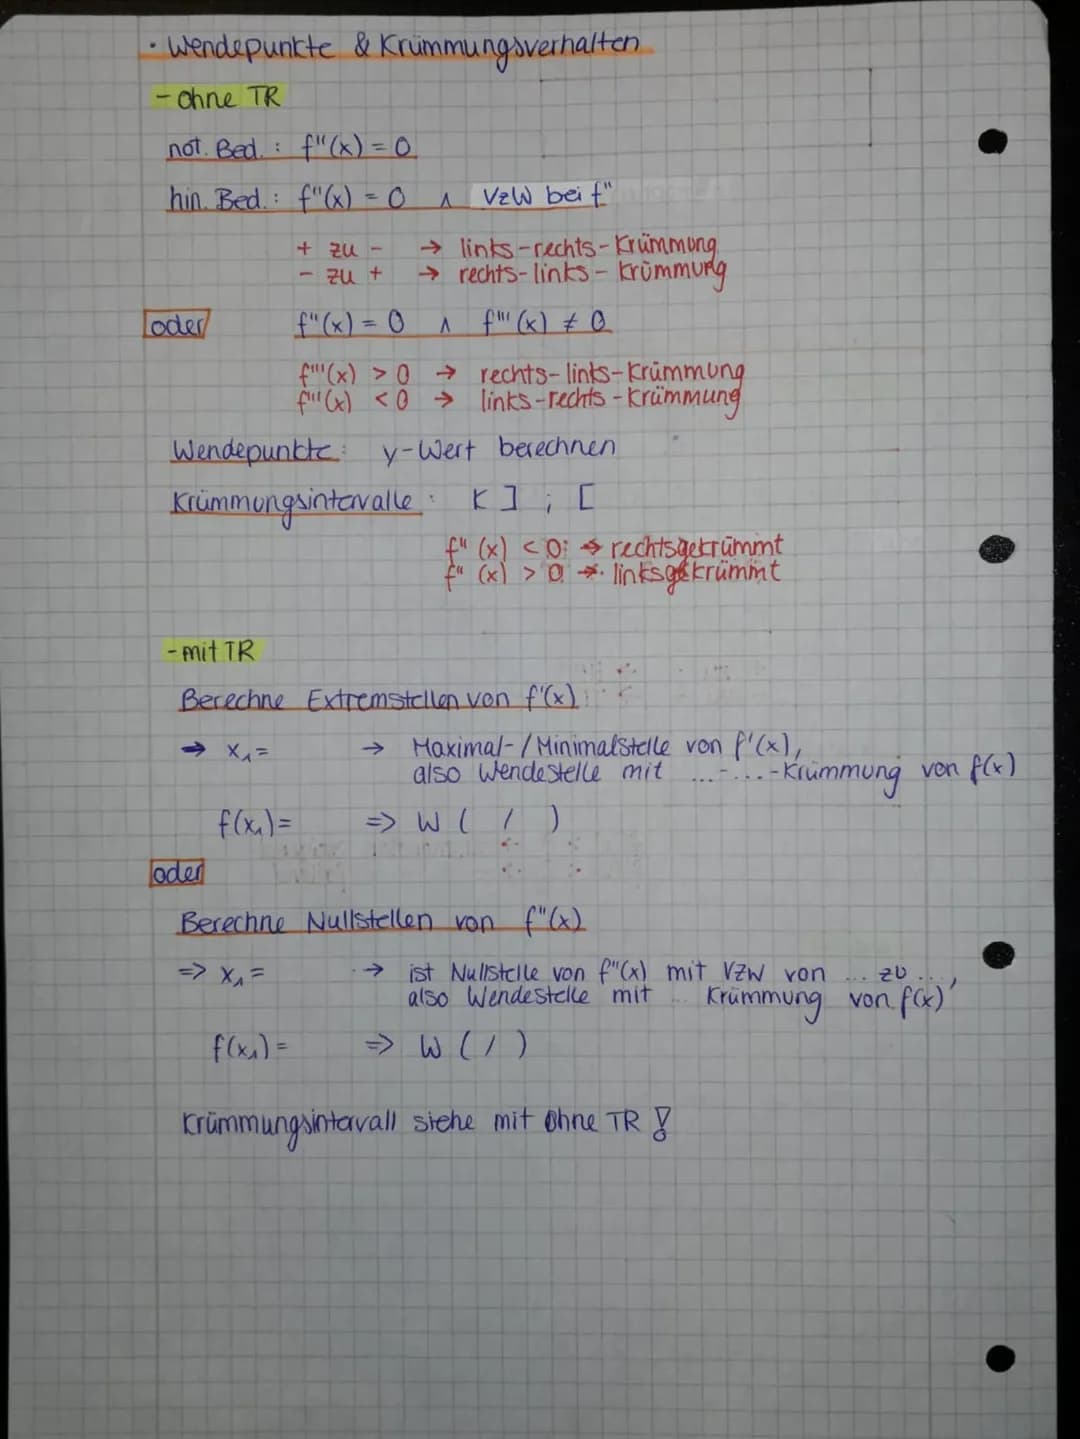 · Wendepunkte & Krümmungsverhalten
- ohne TR
not. Bed.: f''(x) = 0
hin. Bed.: f''(x) = 0 ∧ VZW bei f''
+ zu - → links-rechts-Krümmung
- zu + → rechts-links-Krümmung
oder f''(x) = 0 ∧ f'''(x) ≠ 0
f'''(x) > 0 → rechts-links-Krümmung
f'''(x) < 0 → links-rechts-Krümmung
Wendepunkte: y-Wert berechnen
Krümmungsintervalle: K ] ; [
f''(x) < 0: → rechtsgekrümmt
f''(x) > 0 → linksgekrümmt
- mit TR
Berechne Extremstellen von f'(x)
→ x₁= → Maximal-/Minimalstelle von f'(x),
also Wendestelle mit ...-...-Krümmung von f(x)
f(x₁)= => W ( / )
oder
Berechne Nullstellen von f''(x)
=> x₁= → ist Nullstelle von f''(x) mit VZW von ... zu ...,
also Wendestelle mit .. Krümmung von f(x)
f(x₁)= => W ( / )
Krümmungsintervall siehe mit ohne TR !